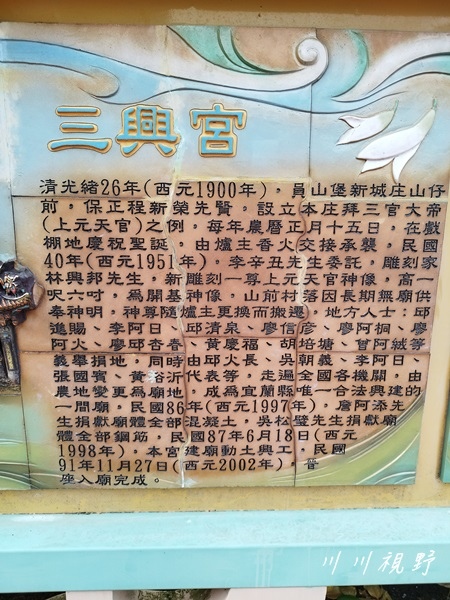 三興宮
清光緒26年(西元1900年)，員山堡新城庄山仔
前，保正程新榮先賢，設立本庄拜三官大帝
(上元天官)之例，每年農曆正月十五日，在戲
棚地慶祝聖誕，由爐主香火交接承襲，民國
40年(西元1951年)，李辛丑先生委託，雕刻家
林興邦先生，新雕刻一尊上元天官神像，高一
呎六吋，為開基神像，山前村落因長期無廟供
奉神明，神尊隨爐主更換而搬遷，地方人士：邱
進賜、李阿日、邱清泉、廖信彥、廖阿桐、廖
阿火、廖邱杏春、黃慶福、胡培塘、曾阿絨等
義舉捐地，同時由邱火長、吳朝義、李阿日、
張國賓、黃裕沂代表等，走遍全國各機關，由
農地變更為廟地，成為宜蘭縣唯一合法興建的
一間廟，民國86年(西元1997年)，詹阿添先
生捐獻廟體全部混凝土，吳松壁先生捐獻廟
體全部鋼筋，民國87年6月18日(西元
1998年)，本宮建廟動土興工，民國
91年11月27日(西元2002年)，晉
座入廟完成。
川川視野